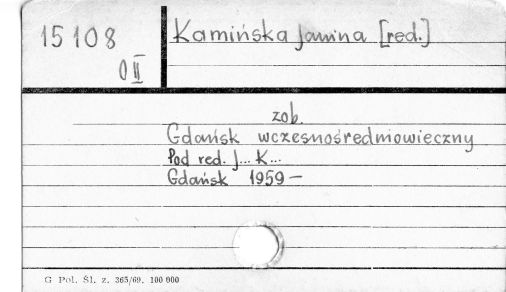 15108
O II
Kamińska Janina [red.]
zob.
Gdańsk wczesnośredniowieczny
Pod red. J... K...
Gdańsk 1959 –
G Pol. Śl. z. 365/69. 100 000